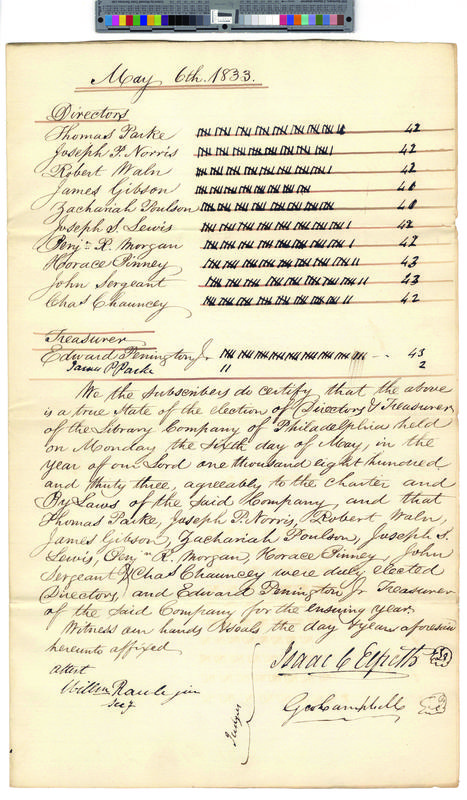 May 6th. 1833.
Directors
Thomas Parke 42
Joseph P. Norris 42
Robert Waln 42
James Gibson 40
Zachariah Poulson 40
Joseph S. Lewis 42
Benj.n R. Morgan 42
Horace Binney 43
John Sergeant 43
Chas Chauncey 42
Treasurer
Edward Penington Jr 43
James P. Parke 2
We the Subscribers do certify that the above
is a true State of the election of Directors & Treasurer
of the Library Company of Philadelphia held
on Monday the sixth day of May, in the
year of our Lord one thousand eight hundred
and thirty three, agreeably to the charter and
By Laws of the said Company and that
Thomas Parke, Joseph P. Norris, Robert Waln,
James Gibson, Zachariah Poulson, Joseph S.
Lewis, Benj.n R. Morgan, Horace Binney, John
Sergeant & Chas Chauncey were duly elected
Directors, and Edward Penington Jr Treasurer
of the said Company for the ensuing year.
Witness our hands & seals the day & year aforesaid
hereunto affixed
attest
William Rawle jun
Secy
Judges
Isaac C
Geo Campbell